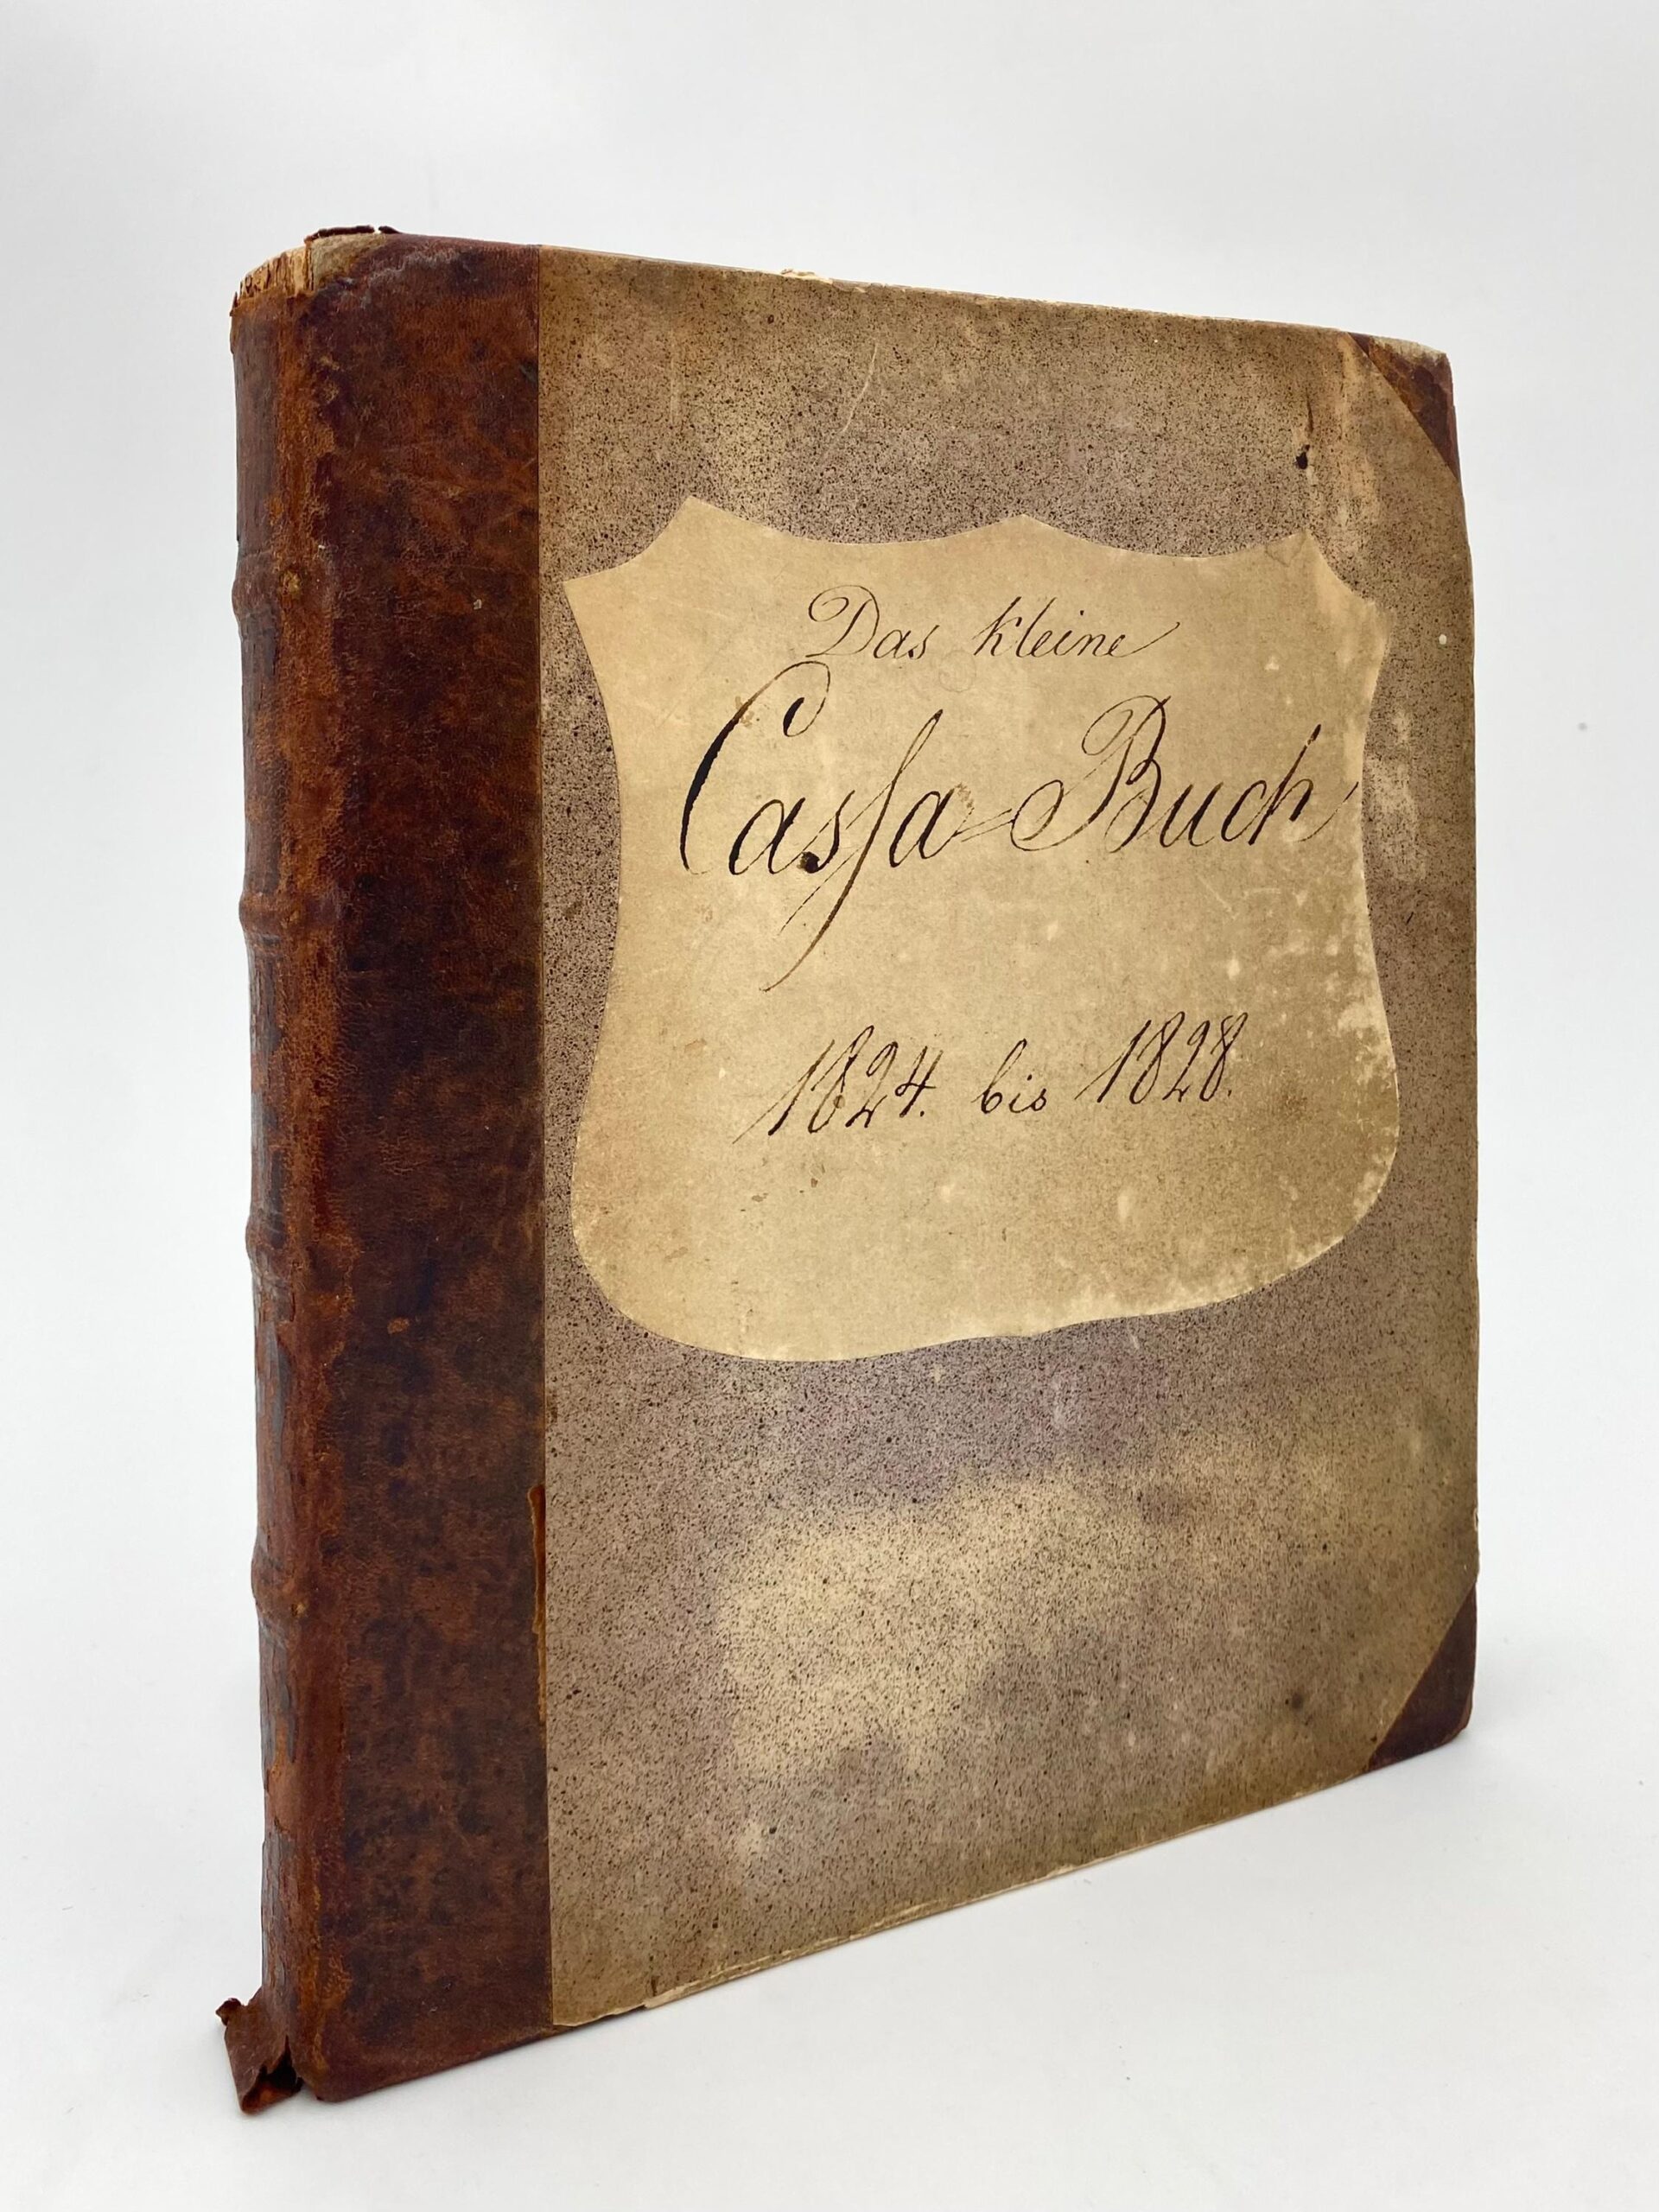 Das kleine
Cassa-Buch
1824. bis 1828.